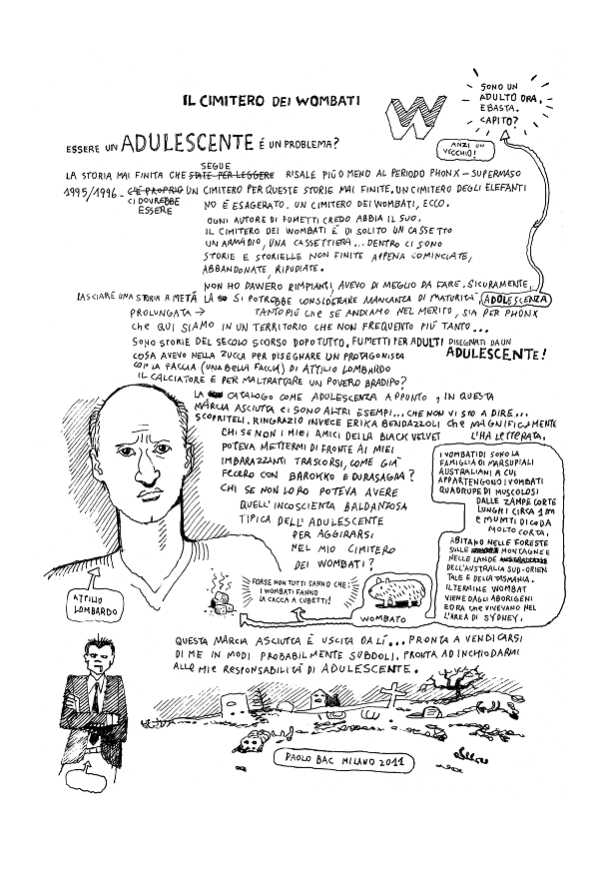 IL CIMITERO DEI WOMBATI
W
SONO UN
ADULTO ORA.
E BASTA.
CAPITO?
ANZI UN
VECCHIO!
ESSERE UN ADULESCENTE É UN PROBLEMA?
SEGUE
LA STORIA MAI FINITA CHE STATE PER LEGGERE RISALE PIÚ O MENO AL PERIODO PHONX – SUPERMASO
1995/1996 - C'É PROPRIO UN CIMITERO PER QUESTE STORIE MAI FINITE. UN CIMITERO DEGLI ELEFANTI
CI DOVREBBE
ESSERE
NO É ESAGERATO. UN CIMITERO DEI WOMBATI, ECCO.
OGNI AUTORE DI FUMETTI CREDO ABBIA IL SUO.
IL CIMITERO DEI WOMBATI É DI SOLITO UN CASSETTO
UN ARMADIO, UNA CASSETTIERA... DENTRO CI SONO
STORIE E STORIELLE NON FINITE APPENA COMINCIATE,
ABBANDONATE, RIPUDIATE.
NON HO DAVVERO RIMPIANTI, AVEVO DI MEGLIO DA FARE. SICURAMENTE,
LASCIARE UNA STORIA A METÁ LÁ SI POTREBBE CONSIDERARE MANCANZA DI MATURITÁ, ADOLESCENZA
PROLUNGATA → TANTO PIÚ CHE SE ANDIAMO NEL MERITO, SIA PER PHONX
CHE QUI SIAMO IN UN TERRITORIO CHE NON FREQUENTO PIÚ TANTO...
SONO STORIE DEL SECOLO SCORSO DOPOTUTTO. FUMETTI PER ADULTI DISEGNATI DA UN
ADULESCENTE!
COSA AVEVO NELLA ZUCCA PER DISEGNARE UN PROTAGONISTA
CON LA FACCIA (UNA BELLA FACCIA) DI ATTILIO LOMBARDO
IL CALCIATORE E PER MALTRATTARE UN POVERO BRADIPO?
LA CATALOGO COME ADULESCENZA APPUNTO, IN QUESTA
MARCIA ASCIUTTA CI SONO ALTRI ESEMPI... CHE NON VI STO A DIRE...
SCOPRITELI. RINGRAZIO INVECE ERIKA BENDAZZOLI CHE MAGNIFICAMENTE
L'HA LETTERATA.
CHI SE NON I MIEI AMICI DELLA BLACK VELVET
POTEVA METTERMI DI FRONTE AI MIEI
IMBARAZZANTI TRASCORSI, COME GIÁ
FECERO CON BAROKKO E DURASAGRA?
CHI SE NON LORO POTEVA AVERE
QUELL'INCOSCIENTE BALDANZOSA
TIPICA DELL'ADULESCENTE
PER AGGIRARSI
NEL MIO CIMITERO
DEI WOMBATI?
I VOMBATIDI SONO LA
FAMIGLIA DI MARSUPIALI
AUSTRALIANI A CUI
APPARTENGONO I VOMBATI
QUADRUPEDI MUSCOLOSI
DALLE ZAMPE CORTE
LUNGHI CIRCA 1 M
E MUNITI DI CODA
MOLTO CORTA.
ABITANO NELLE FORESTE
SULLE MONTAGNE E
NELLE LANDE
DELL'AUSTRALIA SUD-ORIEN
TALE E DELLA TASMANIA.
IL TERMINE WOMBAT
VIENE DAGLI ABORIGENI
EORA CHE VIVEVANO NEL
L'AREA DI SYDNEY.
ATTILIO
LOMBARDO
FORSE NON TUTTI SANNO CHE:
I WOMBATI FANNO
LA CACCA A CUBETTI!
WOMBATO
QUESTA MARCIA ASCIUTTA É USCITA DA LÍ... PRONTA A VENDICARSI
DI ME IN MODI PROBABILMENTE SUBDOLI. PRONTA AD INCHIODARMI
ALLE MIE RESPONSABILITÁ DI ADULESCENTE.
PAOLO BAC MILANO 2011